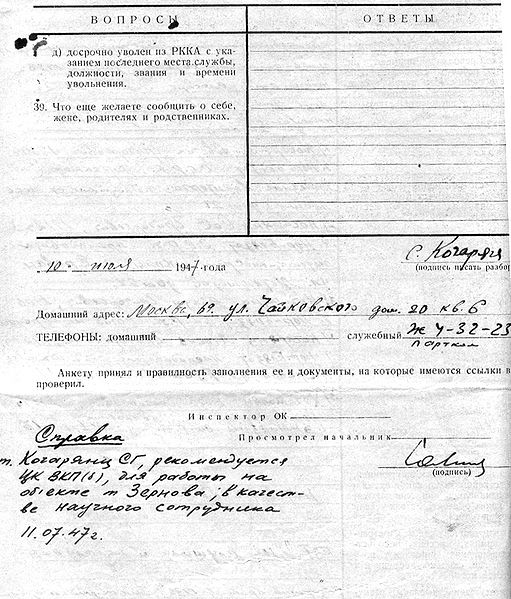 ВОПРОСЫ ОТВЕТЫ
д) досрочно уволен из РККА с ука-
занием последнего места службы,
должности, звания и времени
увольнения.
39. Что еще желаете сообщить о себе,
жеке, родителях и родственниках.
10 июля 1947 года
С. Кочарянц
(подпись писать разбор
Домашний адрес: Москва, 69 ул. Чайковского дом. 20 кв. 6
ТЕЛЕФОНЫ: домашний служебный Ж 4-32-23
партком
Анкету принял и правильность заполнения ее и документы, на которые имеются ссылки в
проверил.
Инспектор ОК
Просмотрел начальник
(подпись)
Справка
т. Кочарянц СГ, рекомендуется
ЦК ВКП(б), для работы на
объекте т Зернова, в качест-
ве научного сотрудника
11.07.47г.